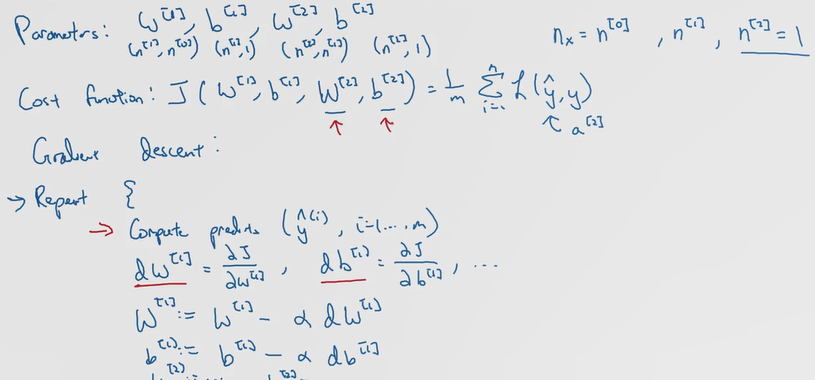 Parameters: W^[1], b^[1], W^[2], b^[2] n_x = n^[0], n^[1], n^[2] = 1
(n^[1], n^[0]) (n^[1], 1) (n^[2], n^[1]) (n^[2], 1)
Cost function: J(W^[1], b^[1], W^[2], b^[2]) = 1/m Σ_{i=1}^n L(ŷ, y)
↑ ↑ ↖ a^[2]
Gradient descent:
→ Repeat {
→ Compute predicts (ŷ^(i), i=1...,m)
dW^[1] = ∂J/∂W^[1], db^[1] = ∂J/∂b^[1], ...
W^[1] := W^[1] - α dW^[1]
b^[1] := b^[1] - α db^[1]